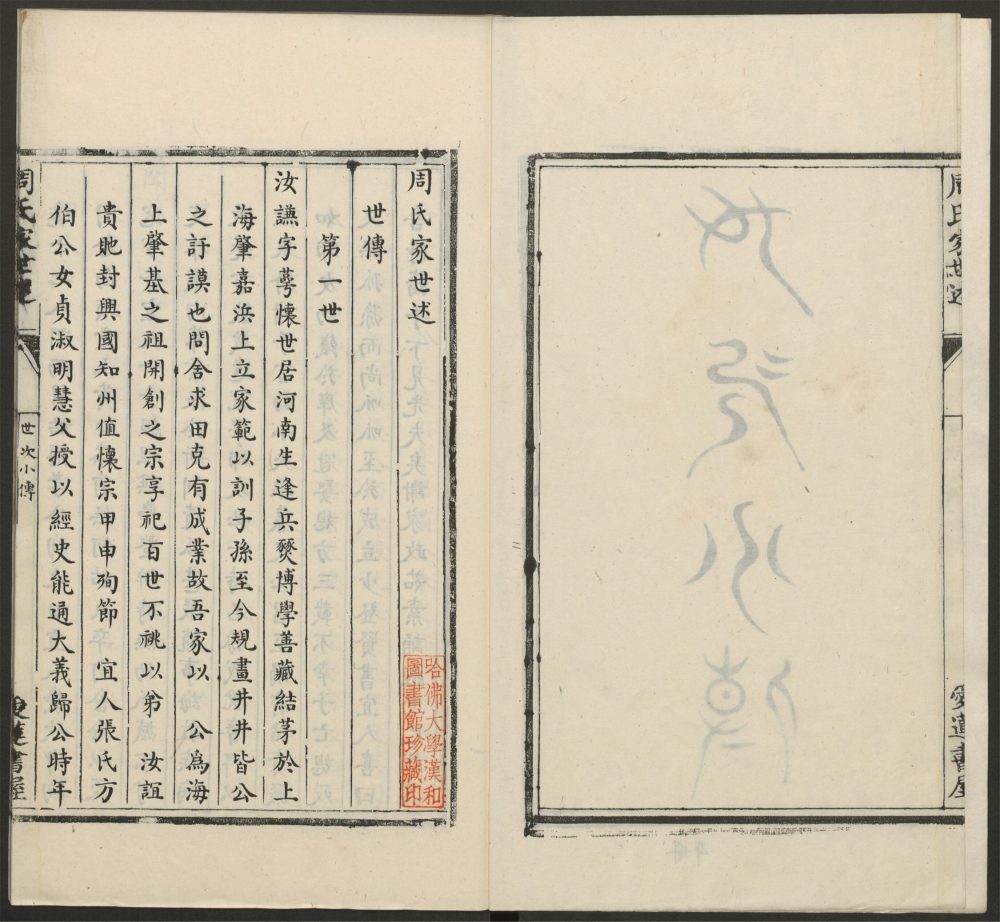 周氏家世述
愛蓮書屋
周氏家世述
世傳
第一世
汝讌字蕚懷世居河南生逢兵燹博學善藏結茅於上
海肇嘉浜上立家範以訓子孫至今規畫井井皆公
之訏謨也問舍求田克有成業故吾家以 公爲海
上肇基之祖開創之宗享祀百世不祧以弟 汝誼
貴貤封興國知州值懷宗甲申殉節 宜人張氏方
伯公女貞淑明慧父授以經史能通大義歸公時年
哈佛大學漢和
圖書館珍藏印
周氏家世述
世次小傳
愛蓮書屋